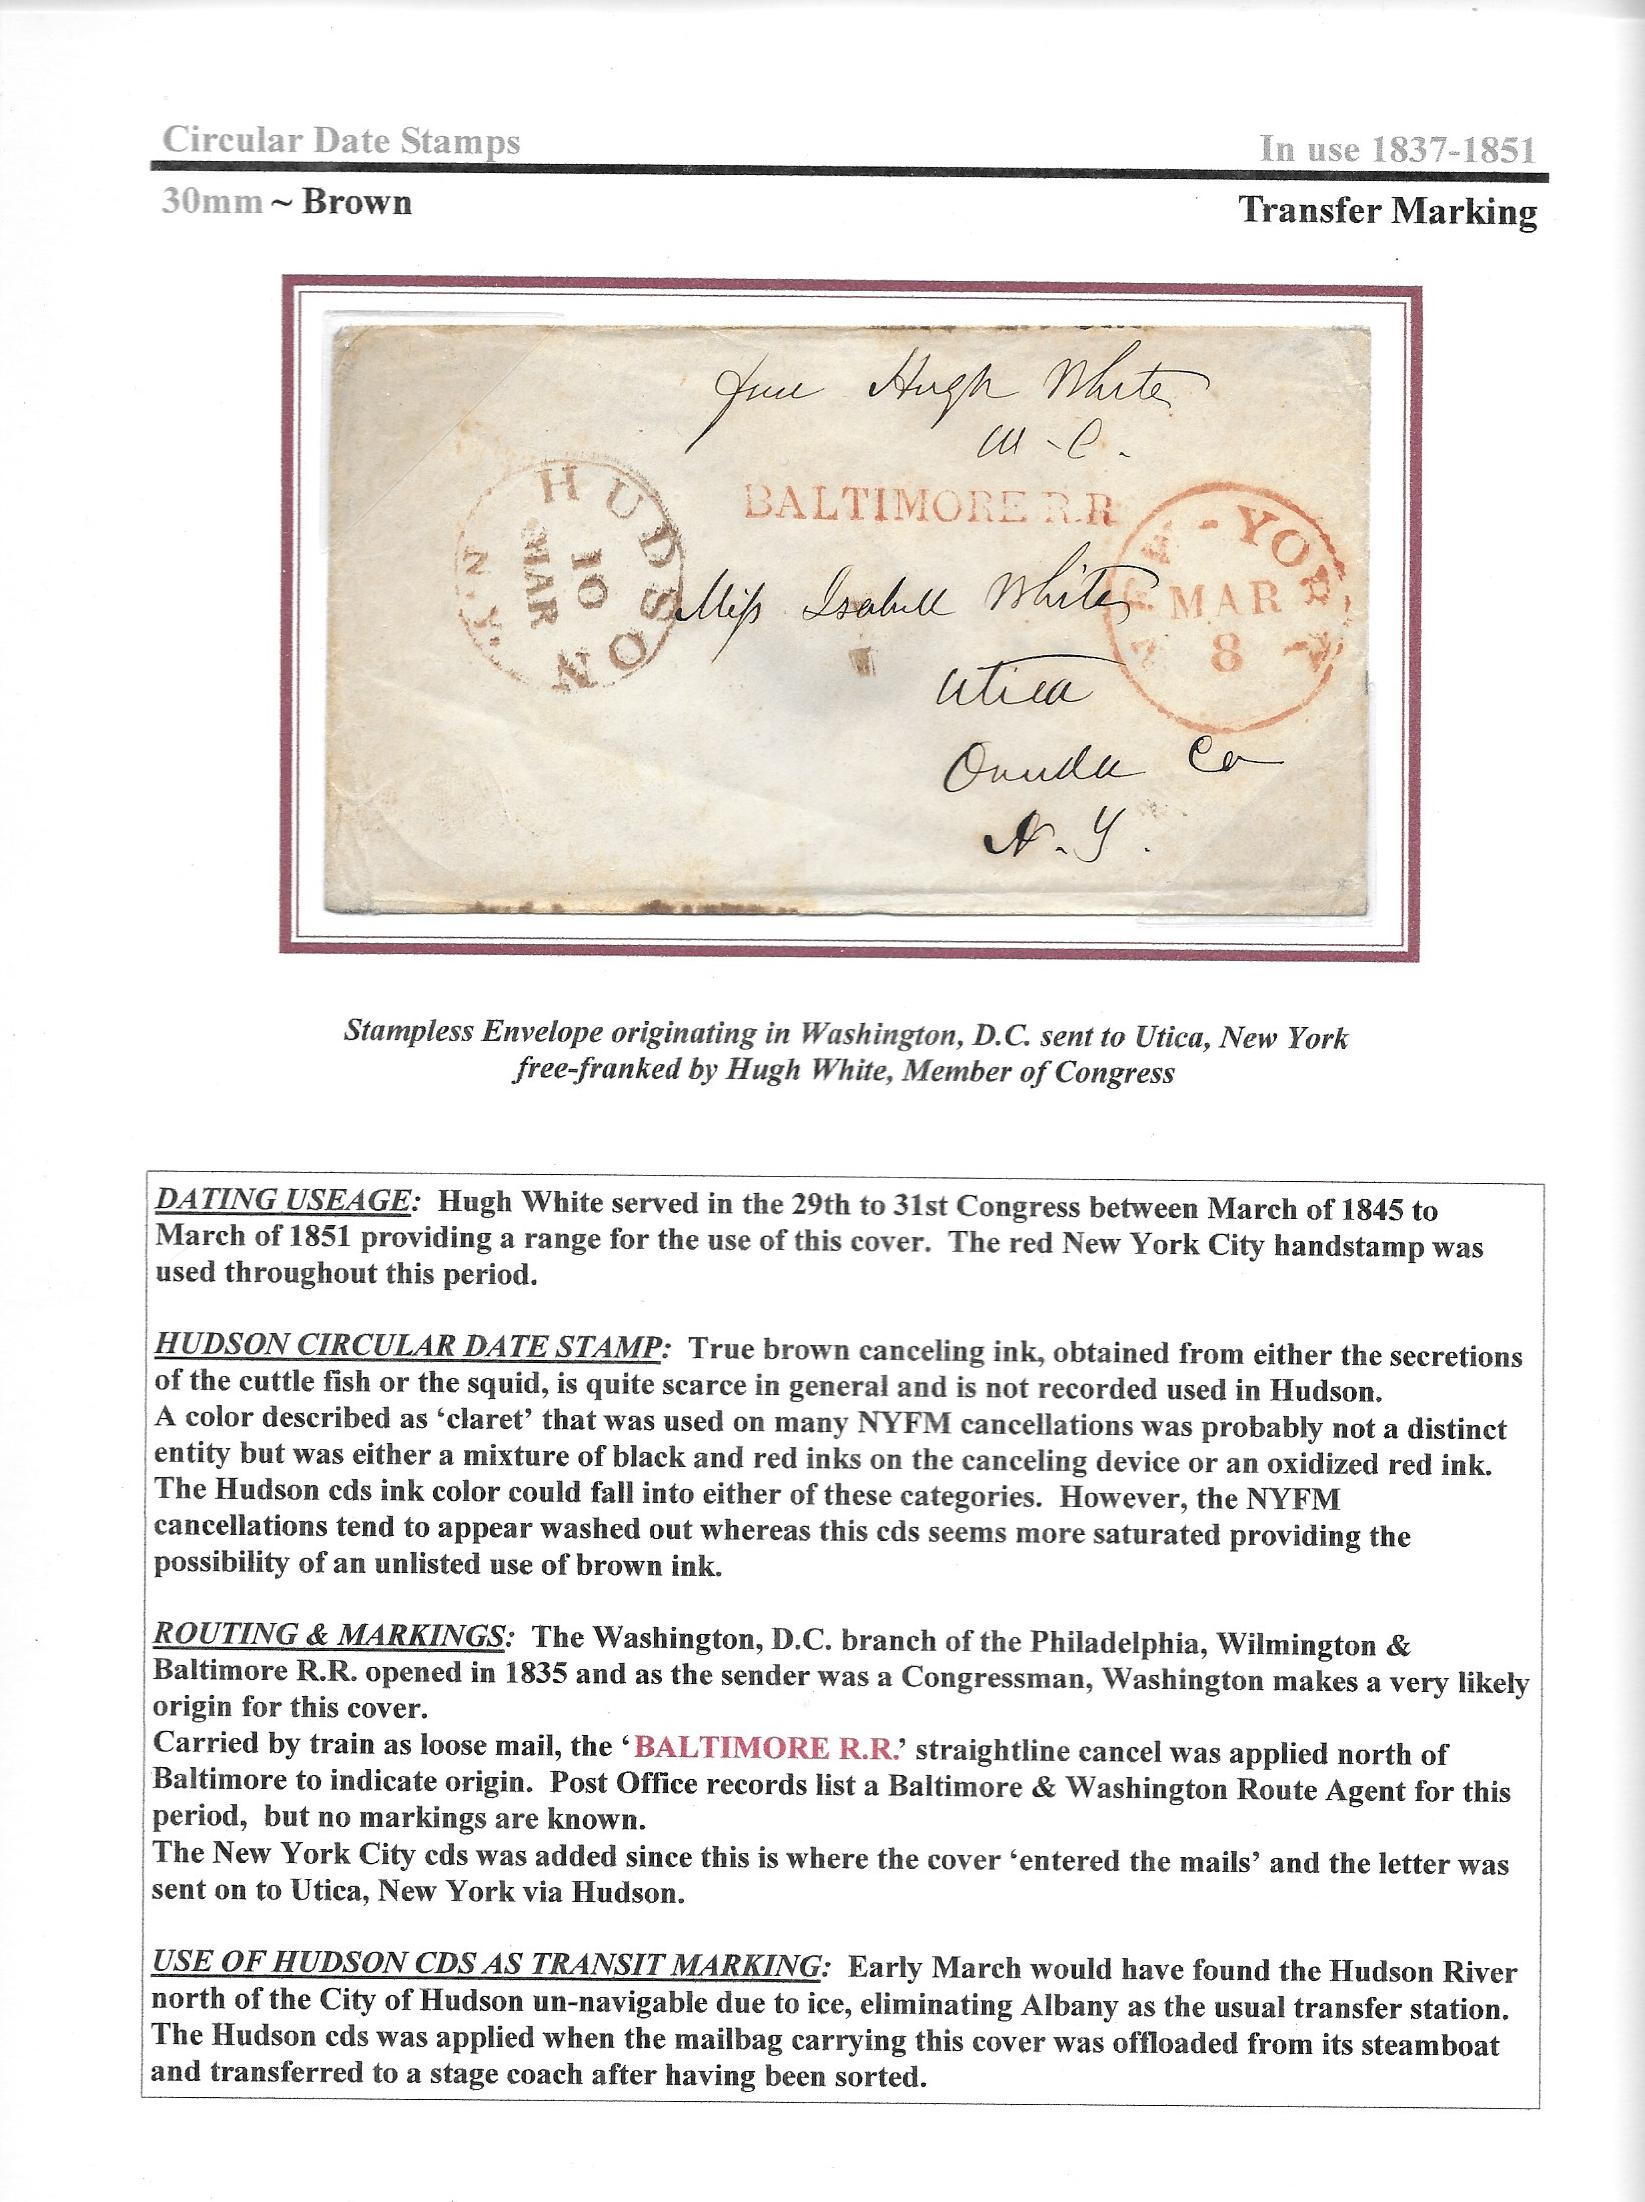 Circular Date Stamps
In use 1837-1851
30mm ~ Brown
Transfer Marking
free Hugh White
M-C.
BALTIMORE R.R
HUDSON
10
MAR
N.Y.
NEW-YORK
MAR
8
Miss Isabell White
Utica
Oneida Co
N. Y.
Stampless Envelope originating in Washington, D.C. sent to Utica, New York
free-franked by Hugh White, Member of Congress
DATING USEAGE: Hugh White served in the 29th to 31st Congress between March of 1845 to
March of 1851 providing a range for the use of this cover. The red New York City handstamp was
used throughout this period.
HUDSON CIRCULAR DATE STAMP: True brown canceling ink, obtained from either the secretions
of the cuttle fish or the squid, is quite scarce in general and is not recorded used in Hudson.
A color described as ‘claret’ that was used on many NYFM cancellations was probably not a distinct
entity but was either a mixture of black and red inks on the canceling device or an oxidized red ink.
The Hudson cds ink color could fall into either of these categories. However, the NYFM
cancellations tend to appear washed out whereas this cds seems more saturated providing the
possibility of an unlisted use of brown ink.
ROUTING & MARKINGS: The Washington, D.C. branch of the Philadelphia, Wilmington &
Baltimore R.R. opened in 1835 and as the sender was a Congressman, Washington makes a very likely
origin for this cover.
Carried by train as loose mail, the ‘BALTIMORE R.R.’ straightline cancel was applied north of
Baltimore to indicate origin. Post Office records list a Baltimore & Washington Route Agent for this
period, but no markings are known.
The New York City cds was added since this is where the cover ‘entered the mails’ and the letter was
sent on to Utica, New York via Hudson.
USE OF HUDSON CDS AS TRANSIT MARKING: Early March would have found the Hudson River
north of the City of Hudson un-navigable due to ice, eliminating Albany as the usual transfer station.
The Hudson cds was applied when the mailbag carrying this cover was offloaded from its steamboat
and transferred to a stage coach after having been sorted.